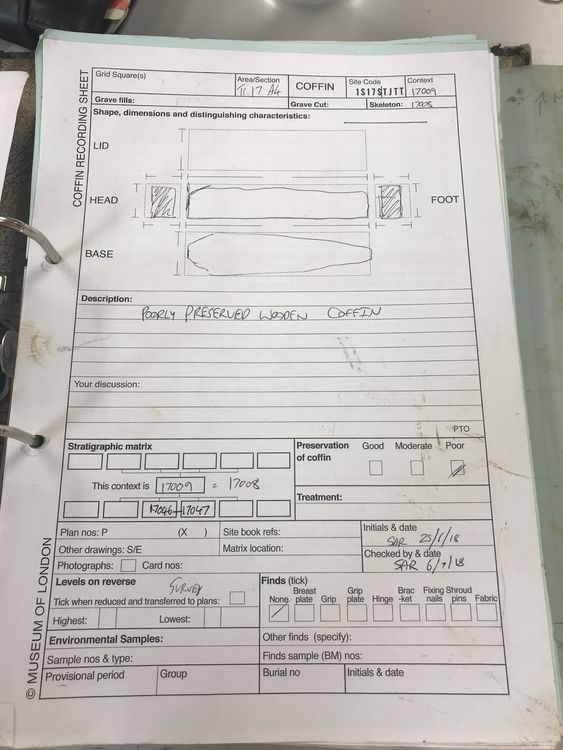 COFFIN RECORDING SHEET
Grid Square(s)
Area/Section
COFFIN
Site Code
1S17STJTT
Context
17009
Grave fills:
Grave Cut:
Skeleton: 17008
Shape, dimensions and distinguishing characteristics:
LID
HEAD
FOOT
BASE
Description:
POORLY PRESERVED WOODEN COFFIN
Your discussion:
PTO
Stratigraphic matrix
This context is 17009 = 17008
17046 17047
Preservation of coffin
Good Moderate Poor
Treatment:
Plan nos: P (X )
Site book refs:
Initials & date
SAR
Other drawings: S/E
Matrix location:
Checked by & date
SAR 6/7/18
Photographs: Card nos:
Levels on reverse
SURVEY
Tick when reduced and transferred to plans:
Highest: Lowest:
Finds (tick)
None Breast plate Grip Grip plate Hinge Brac -ket Fixing nails Shroud pins Fabric
Environmental Samples:
Other finds (specify):
Sample nos & type:
Finds sample (BM) nos:
Provisional period
Group
Burial no
Initials & date
© MUSEUM OF LONDON